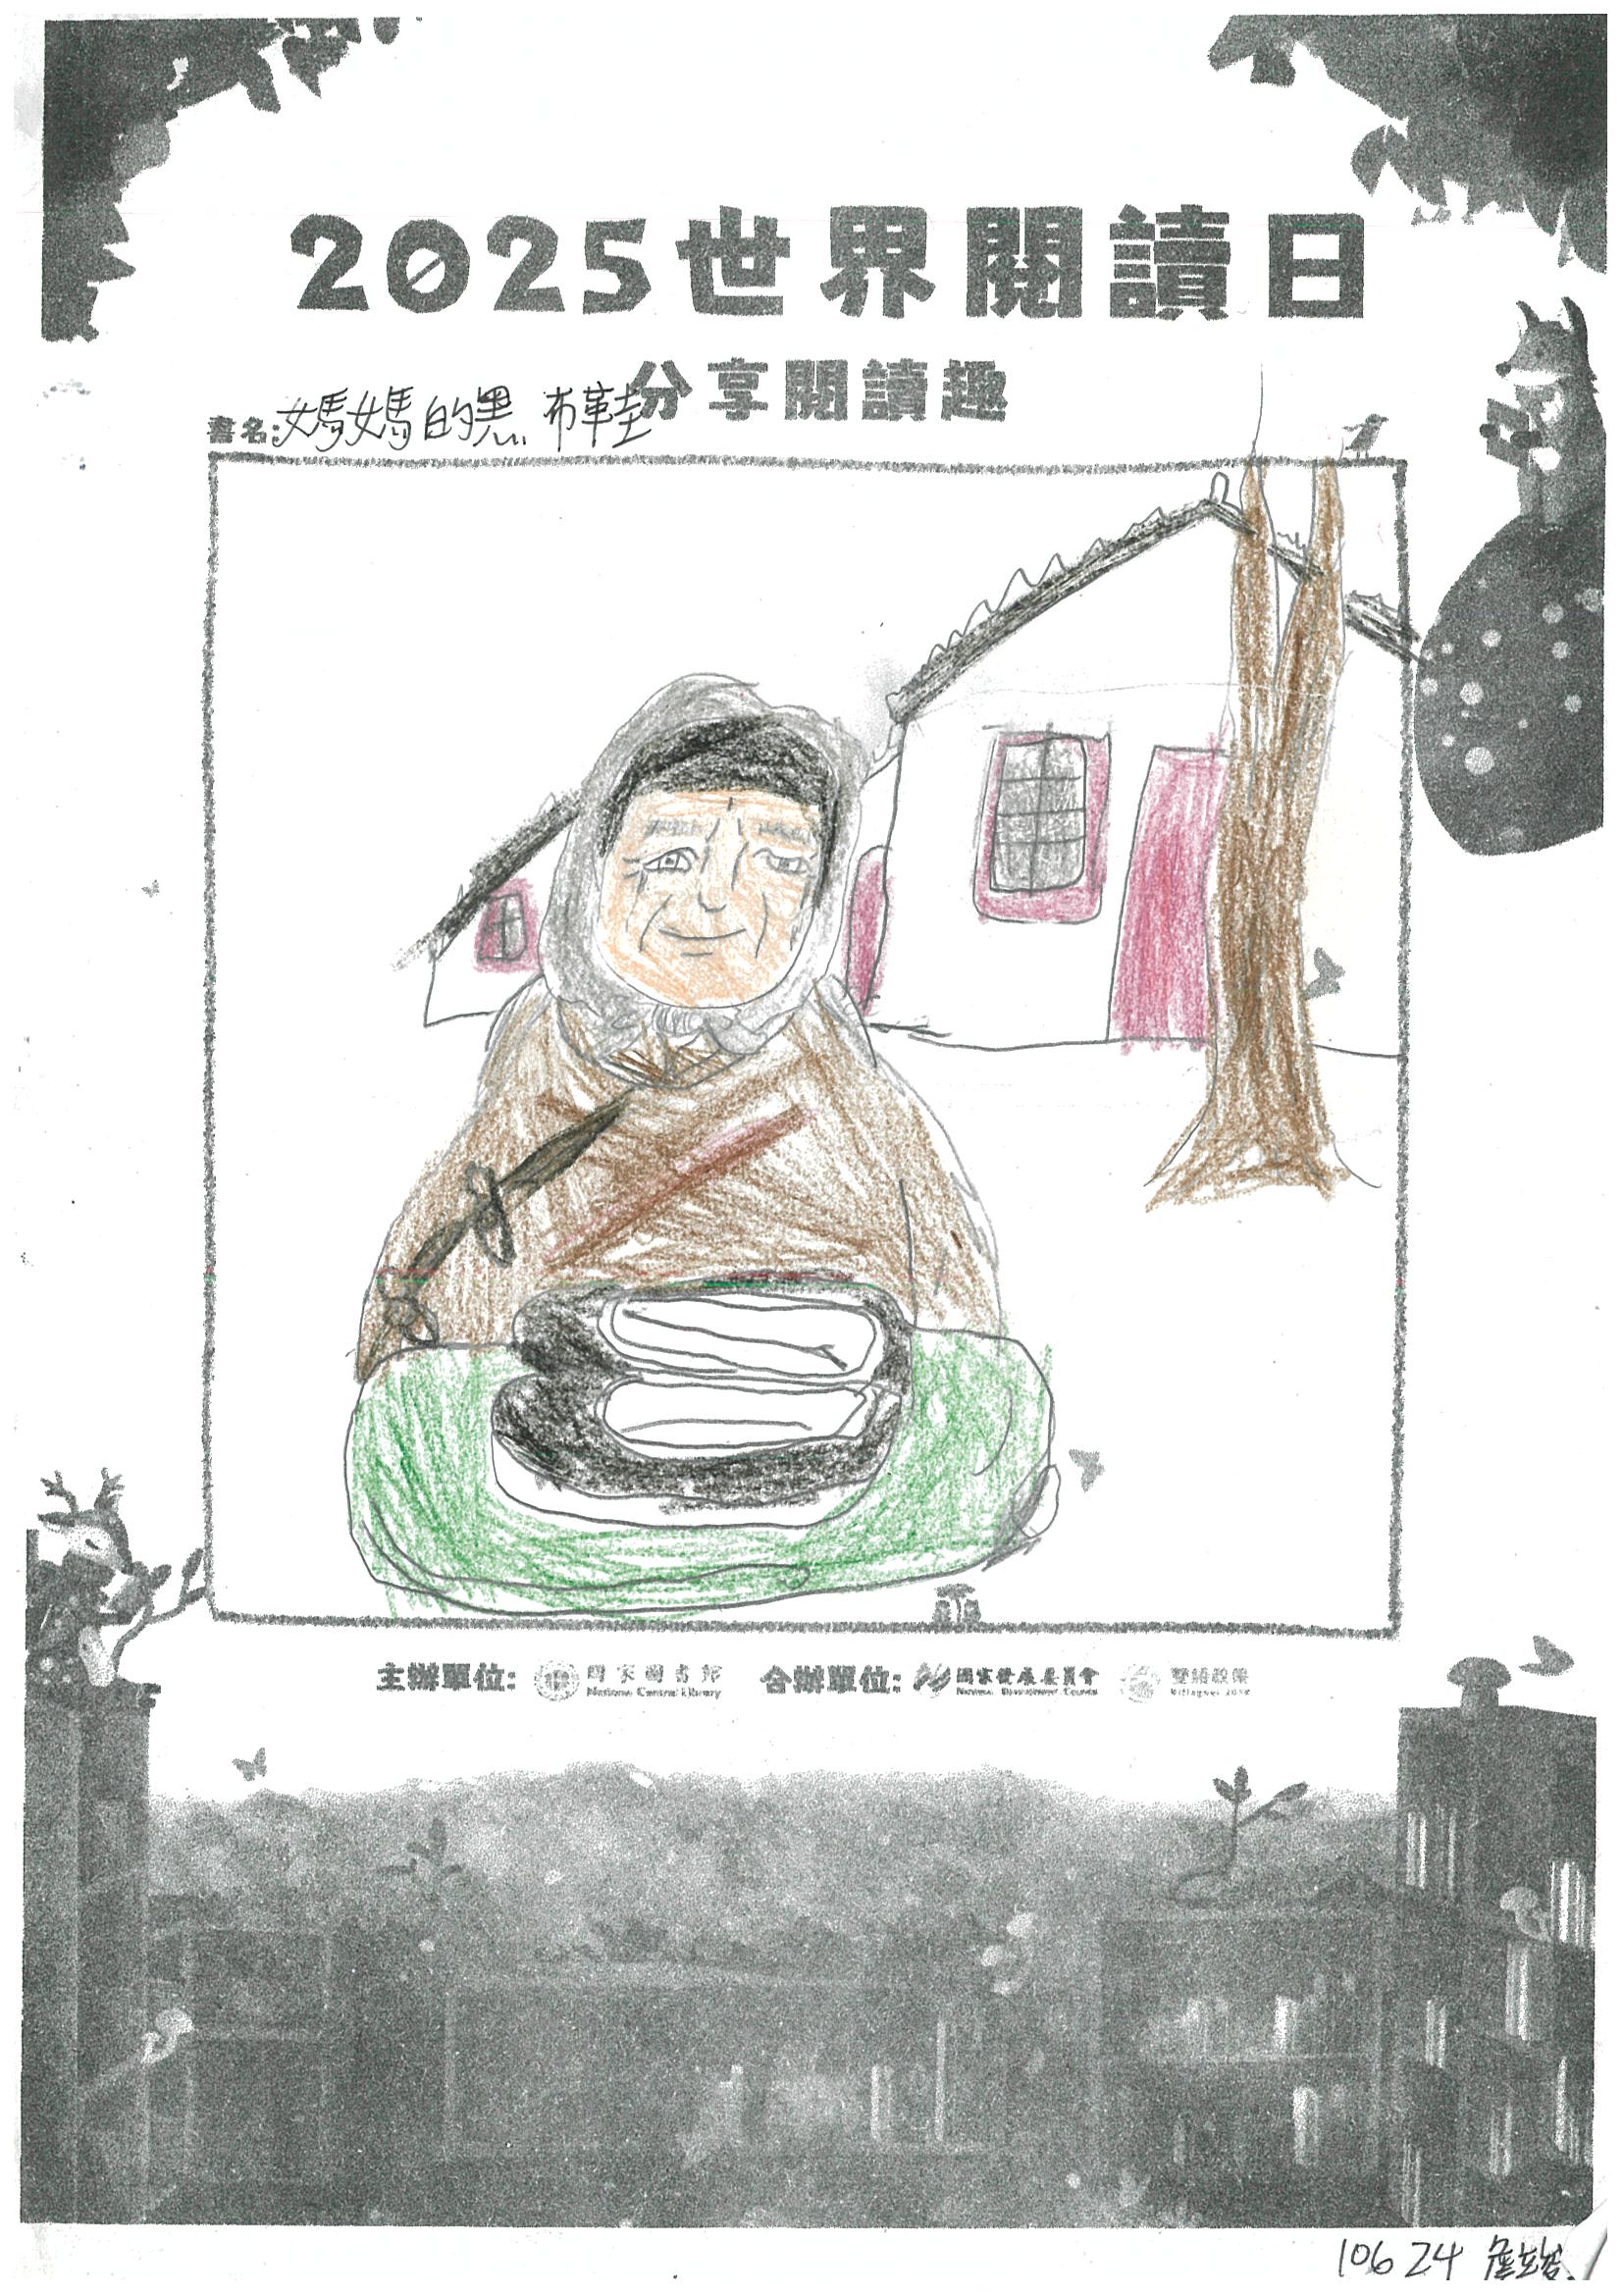 2025世界閱讀日
分享閱讀趣
書名:媽媽的黑布鞋
主辦單位: 國家圖書館 National Central Library 合辦單位: 國家發展委員會 National Development Council 雙語政策 Bilingual 2030
106 24